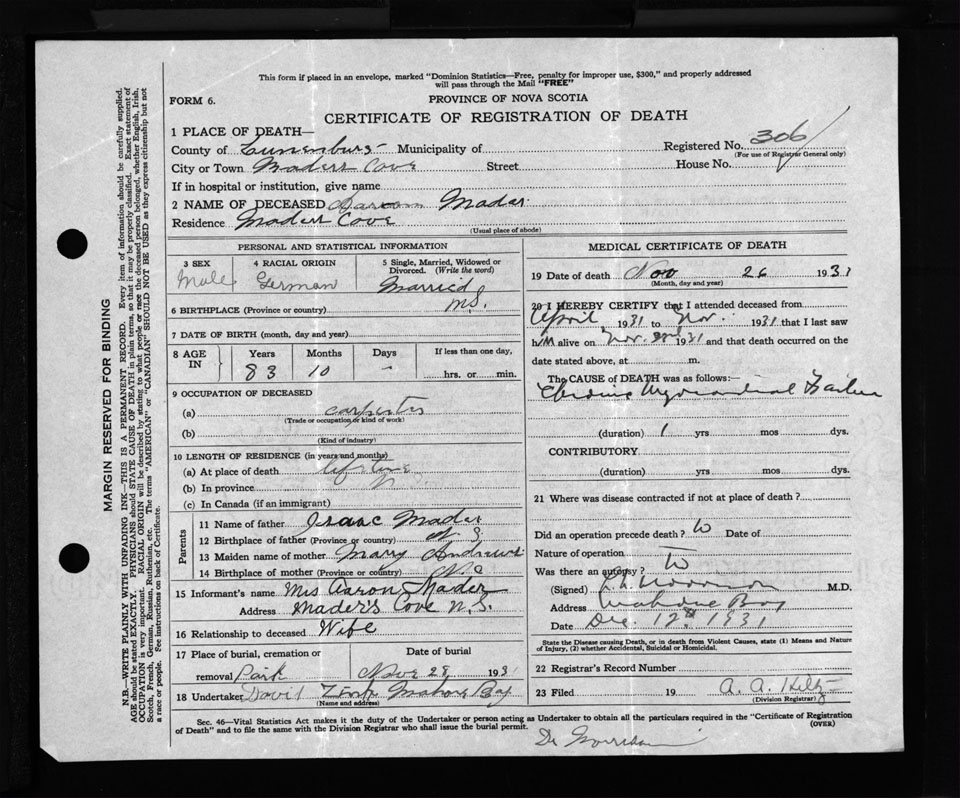 This form if placed in an envelope, marked "Dominion Statistics—Free, penalty for improper use, $300," and properly addressed
will pass through the Mail "FREE"
FORM 6.
PROVINCE OF NOVA SCOTIA
CERTIFICATE OF REGISTRATION OF DEATH
1 PLACE OF DEATH—
County of Lunenburg Municipality of
Registered No. 306
(For use of Registrar General only)
City or Town Maders Cove Street House No.
If in hospital or institution, give name
2 NAME OF DECEASED Aaron Mader
Residence Maders Cove
(Usual place of abode)
PERSONAL AND STATISTICAL INFORMATION
3 SEX
Male
4 RACIAL ORIGIN
German
5 Single, Married, Widowed or
Divorced. (Write the word)
Married
6 BIRTHPLACE (Province or country) N.S.
7 DATE OF BIRTH (month, day and year)
8 AGE
IN
Years
83
Months
10
Days
-
If less than one day,
hrs. or min.
9 OCCUPATION OF DECEASED
(a) carpenter
(Trade or occupation or kind of work)
(b)
(Kind of industry)
10 LENGTH OF RESIDENCE (in years and months)
(a) At place of death lifetime
(b) In province "
(c) In Canada (if an immigrant)
Parents
11 Name of father Isaac Mader
12 Birthplace of father (Province or country) N.S
13 Maiden name of mother Mary Andrews
14 Birthplace of mother (Province or country)
15 Informant's name Mrs Aaron Mader
Address Mader's Cove N.S.
16 Relationship to deceased Wife
17 Place of burial, cremation or
removal Park
Date of burial
Nov 28 1931
18 Undertaker David Zink Mahone Bay
(Name and address)
MEDICAL CERTIFICATE OF DEATH
19 Date of death Nov 26 1931
(Month, day and year)
20 I HEREBY CERTIFY that I attended deceased from
April 1931 to Nov. 1931 that I last saw
him alive on Nov. 1931 and that death occurred on the
date stated above, at m.
The CAUSE of DEATH was as follows:—
Chronic Myocardial Failure
(duration) 1 yrs mos dys.
CONTRIBUTORY
(duration) yrs mos dys.
21 Where was disease contracted if not at place of death?
Did an operation precede death? Date of
Nature of operation
Was there an autopsy?
(Signed) M.D.
Address Mahone Bay
Date Dec. 12th 1931
State the Disease causing Death, or in death from Violent Causes, state (1) Means and Nature
of Injury, (2) whether Accidental, Suicidal or Homicidal.
22 Registrar's Record Number
23 Filed 19 A. A.
(Division Registrar)
Sec. 46—Vital Statistics Act makes it the duty of the Undertaker or person acting as Undertaker to obtain all the particulars required in the "Certificate of Registration
of Death" and to file the same with the Division Registrar who shall issue the burial permit.
(OVER)
Dr
MARGIN RESERVED FOR BINDING
N.B.—WRITE PLAINLY WITH UNFADING INK—THIS IS A PERMANENT RECORD. Every item of information should be carefully supplied.
AGE should be stated EXACTLY. PHYSICIANS should STATE CAUSE OF DEATH in plain terms, so that it may be properly classified. Exact statement of
OCCUPATION is very important. RACIAL ORIGIN will be described by stating to what people or race the deceased person belonged, whether English, Irish,
Scotch, French, German, Russian, Ruthenian, etc. The terms "AMERICAN" or "CANADIAN" SHOULD NOT BE USED as they express citizenship but not
a race or people. See instructions on back of Certificate.